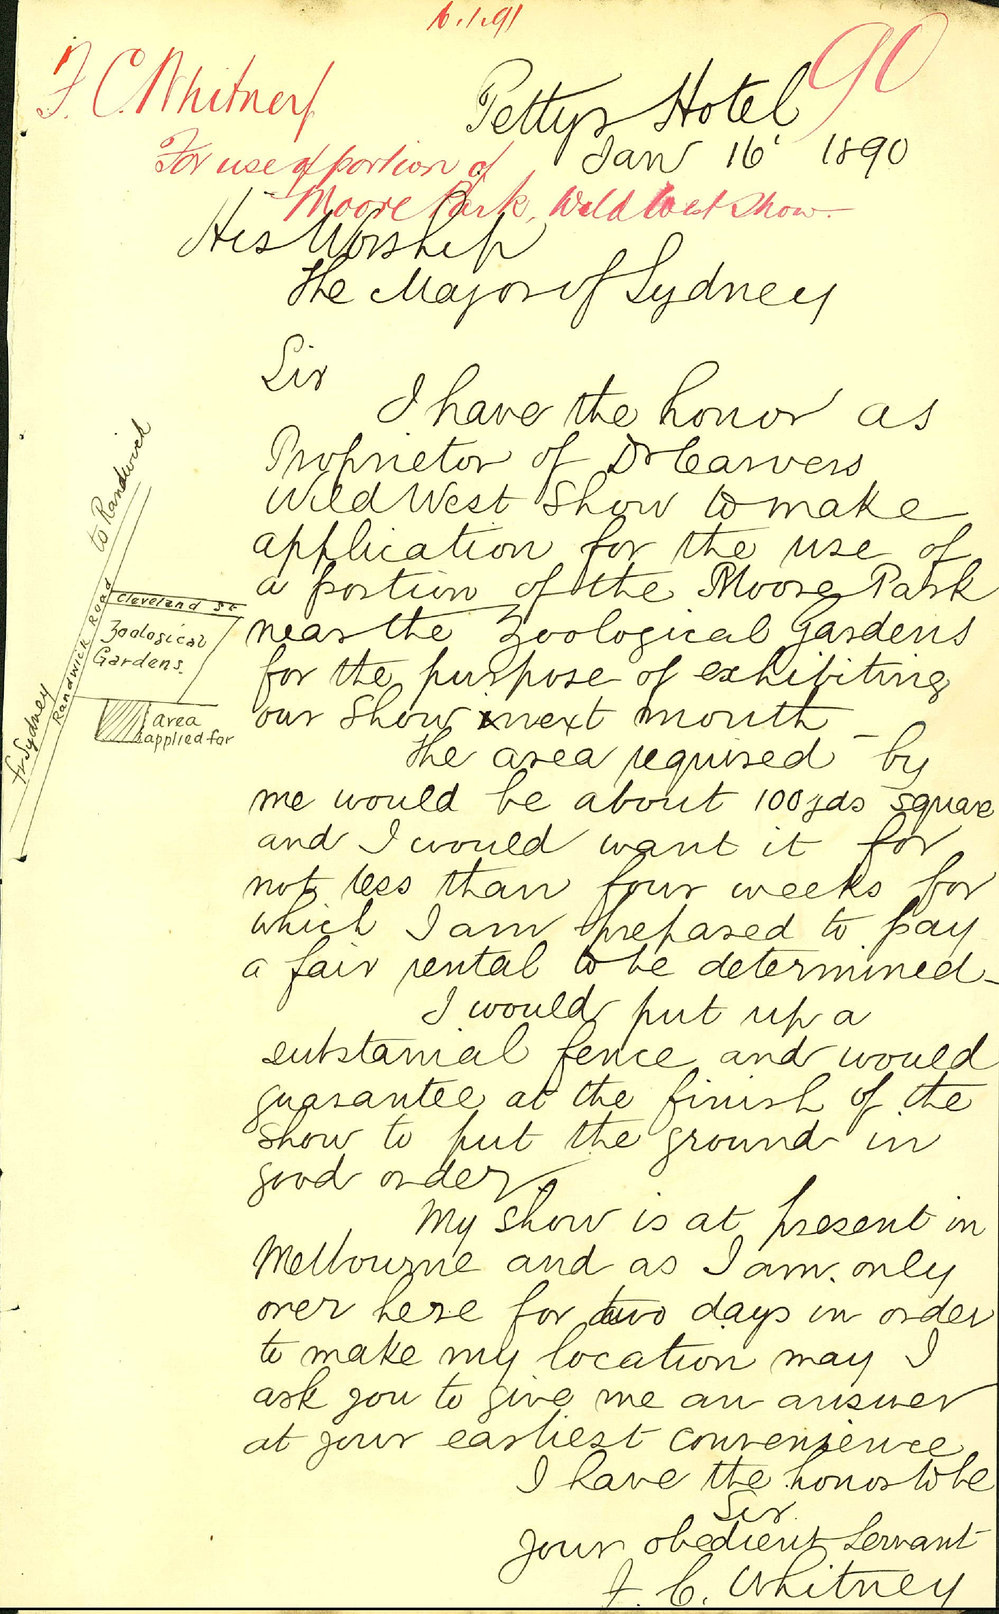 16.1.91
90
F. C. Whitney
Pettys Hotel
Jan 16 1890
For use of portion of
Moore Park, Wild West Show
His Worship
The Mayor of Sydney
Sir
I have the honor as
Proprietor of Dr Carvers
Wild West Show to make
application for the use of
a portion of the Moore Park
near the Zoological Gardens
for the purpose of exhibiting
our Show next month
The area required by
me would be about 100 yds square
and I would want it for
not less than four weeks for
which I am prepared to pay
a fair rental to be determined
I would put up a
substanial fence and would
guarantee at the finish of the
show to put the ground in
good order.
My show is at present in
Melbourne and as I am only
over here for two days in order
to make my location may I
ask you to give me an answer
at your earliest convenience
I have the honor to be
Sir
Your obedient Servant
F. C. Whitney
to Randwick
Randwick Road
fr Sydney
Cleveland St
Zoological
Gardens.
area
applied for